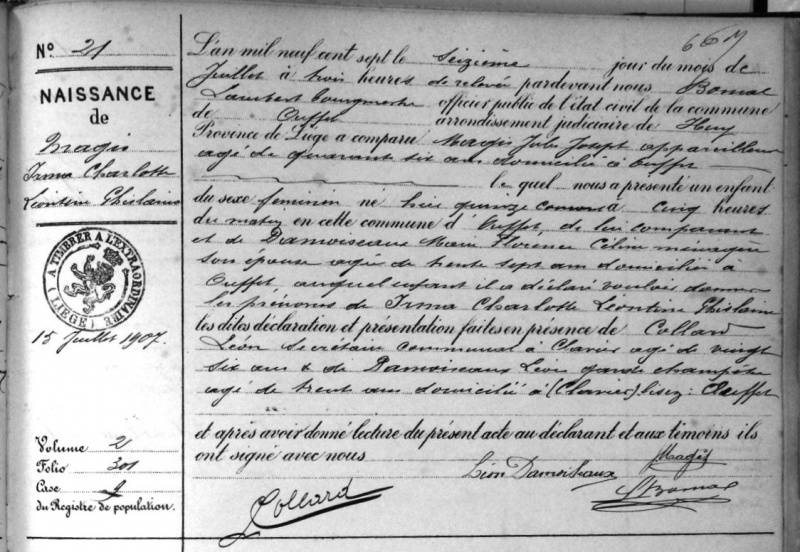 667
Nº 21
NAISSANCE
de
Magis
Irma Charlotte
Léontine Ghislaine
A TIMBRER A L'EXTRAORDINAIRE
(LIEGE)
15 Juillet 1907.
Volume 2
Folio 301
Case
du Registre de population.
L'an mil neuf cent sept le seizième jour du mois de
Juillet à trois heures de relevée pardevant nous Bomal
Lambert bourgmestre officier public de l'état civil de la commune
de Ouffet arrondissement judiciaire de Huy
Province de Liége a comparu Magis Jules Joseph appareilleur
agé de quarant six ans domicilié à Ouffet
le quel nous a présenté un enfant
du sexe feminin né hier quinze courant à cinq heures
du matin en cette commune d'Ouffet, de lui comparant
et de Damoiseaux Marie Florence Céline ménagère
son épouse agée de trente sept ans domiciliée à
Ouffet, auquel enfant il a déclaré vouloir donner
les prénoms de Irma Charlotte Léontine Ghislaine
les dites déclaration et présentation faites en présence de Collard
Léon secrétaire communal à Clavier agé de vingt
six ans & de Damoiseaux Léon garde champêtre
agé de trent ans domicilié à (Clavier) lisez: Ouffet
et après avoir donné lecture du présent acte au déclarant et aux témoins ils
ont signé avec nous
Léon Damoiseaux
Magis
Collard
Bomal